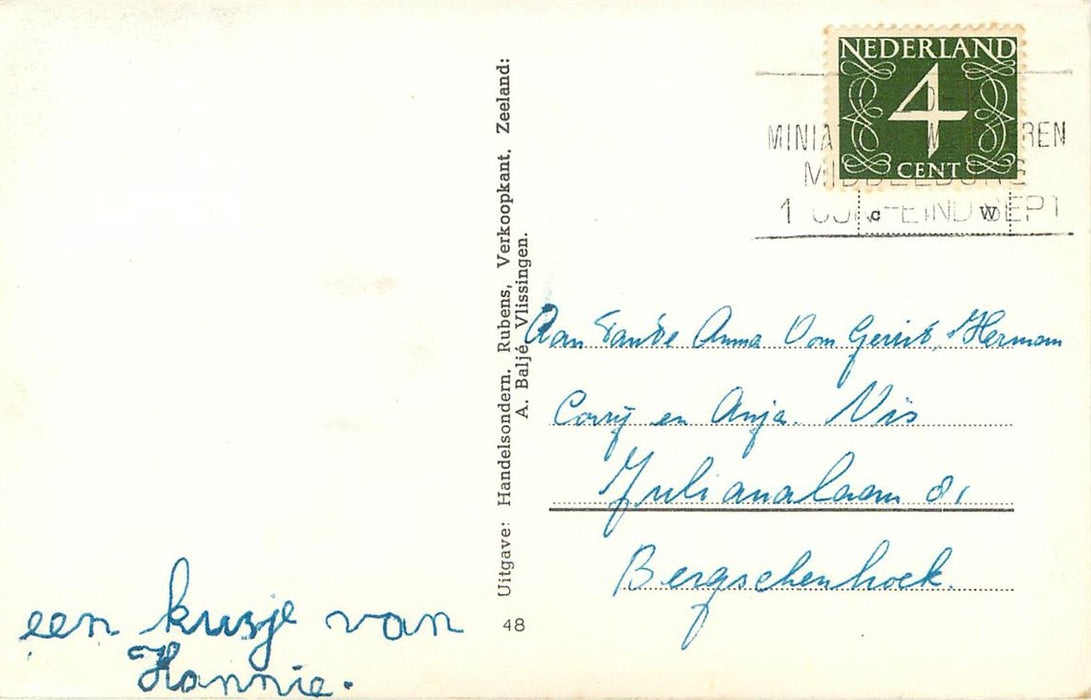 NEDERLAND
4
CENT
MINIA REN
MIDDELBURG
1 JUNI-EIND SEPT
c W
Uitgave: Handelsondern. Rubens, Verkoopkant. Zeeland:
A. Baljé Vlissingen.
48
Aan Tante Anna Oom Gerrit, Herman
Corrÿ en Anja. Vis
Julianalaan 81
Bergschenhoek.
een kusje van
Hannie.